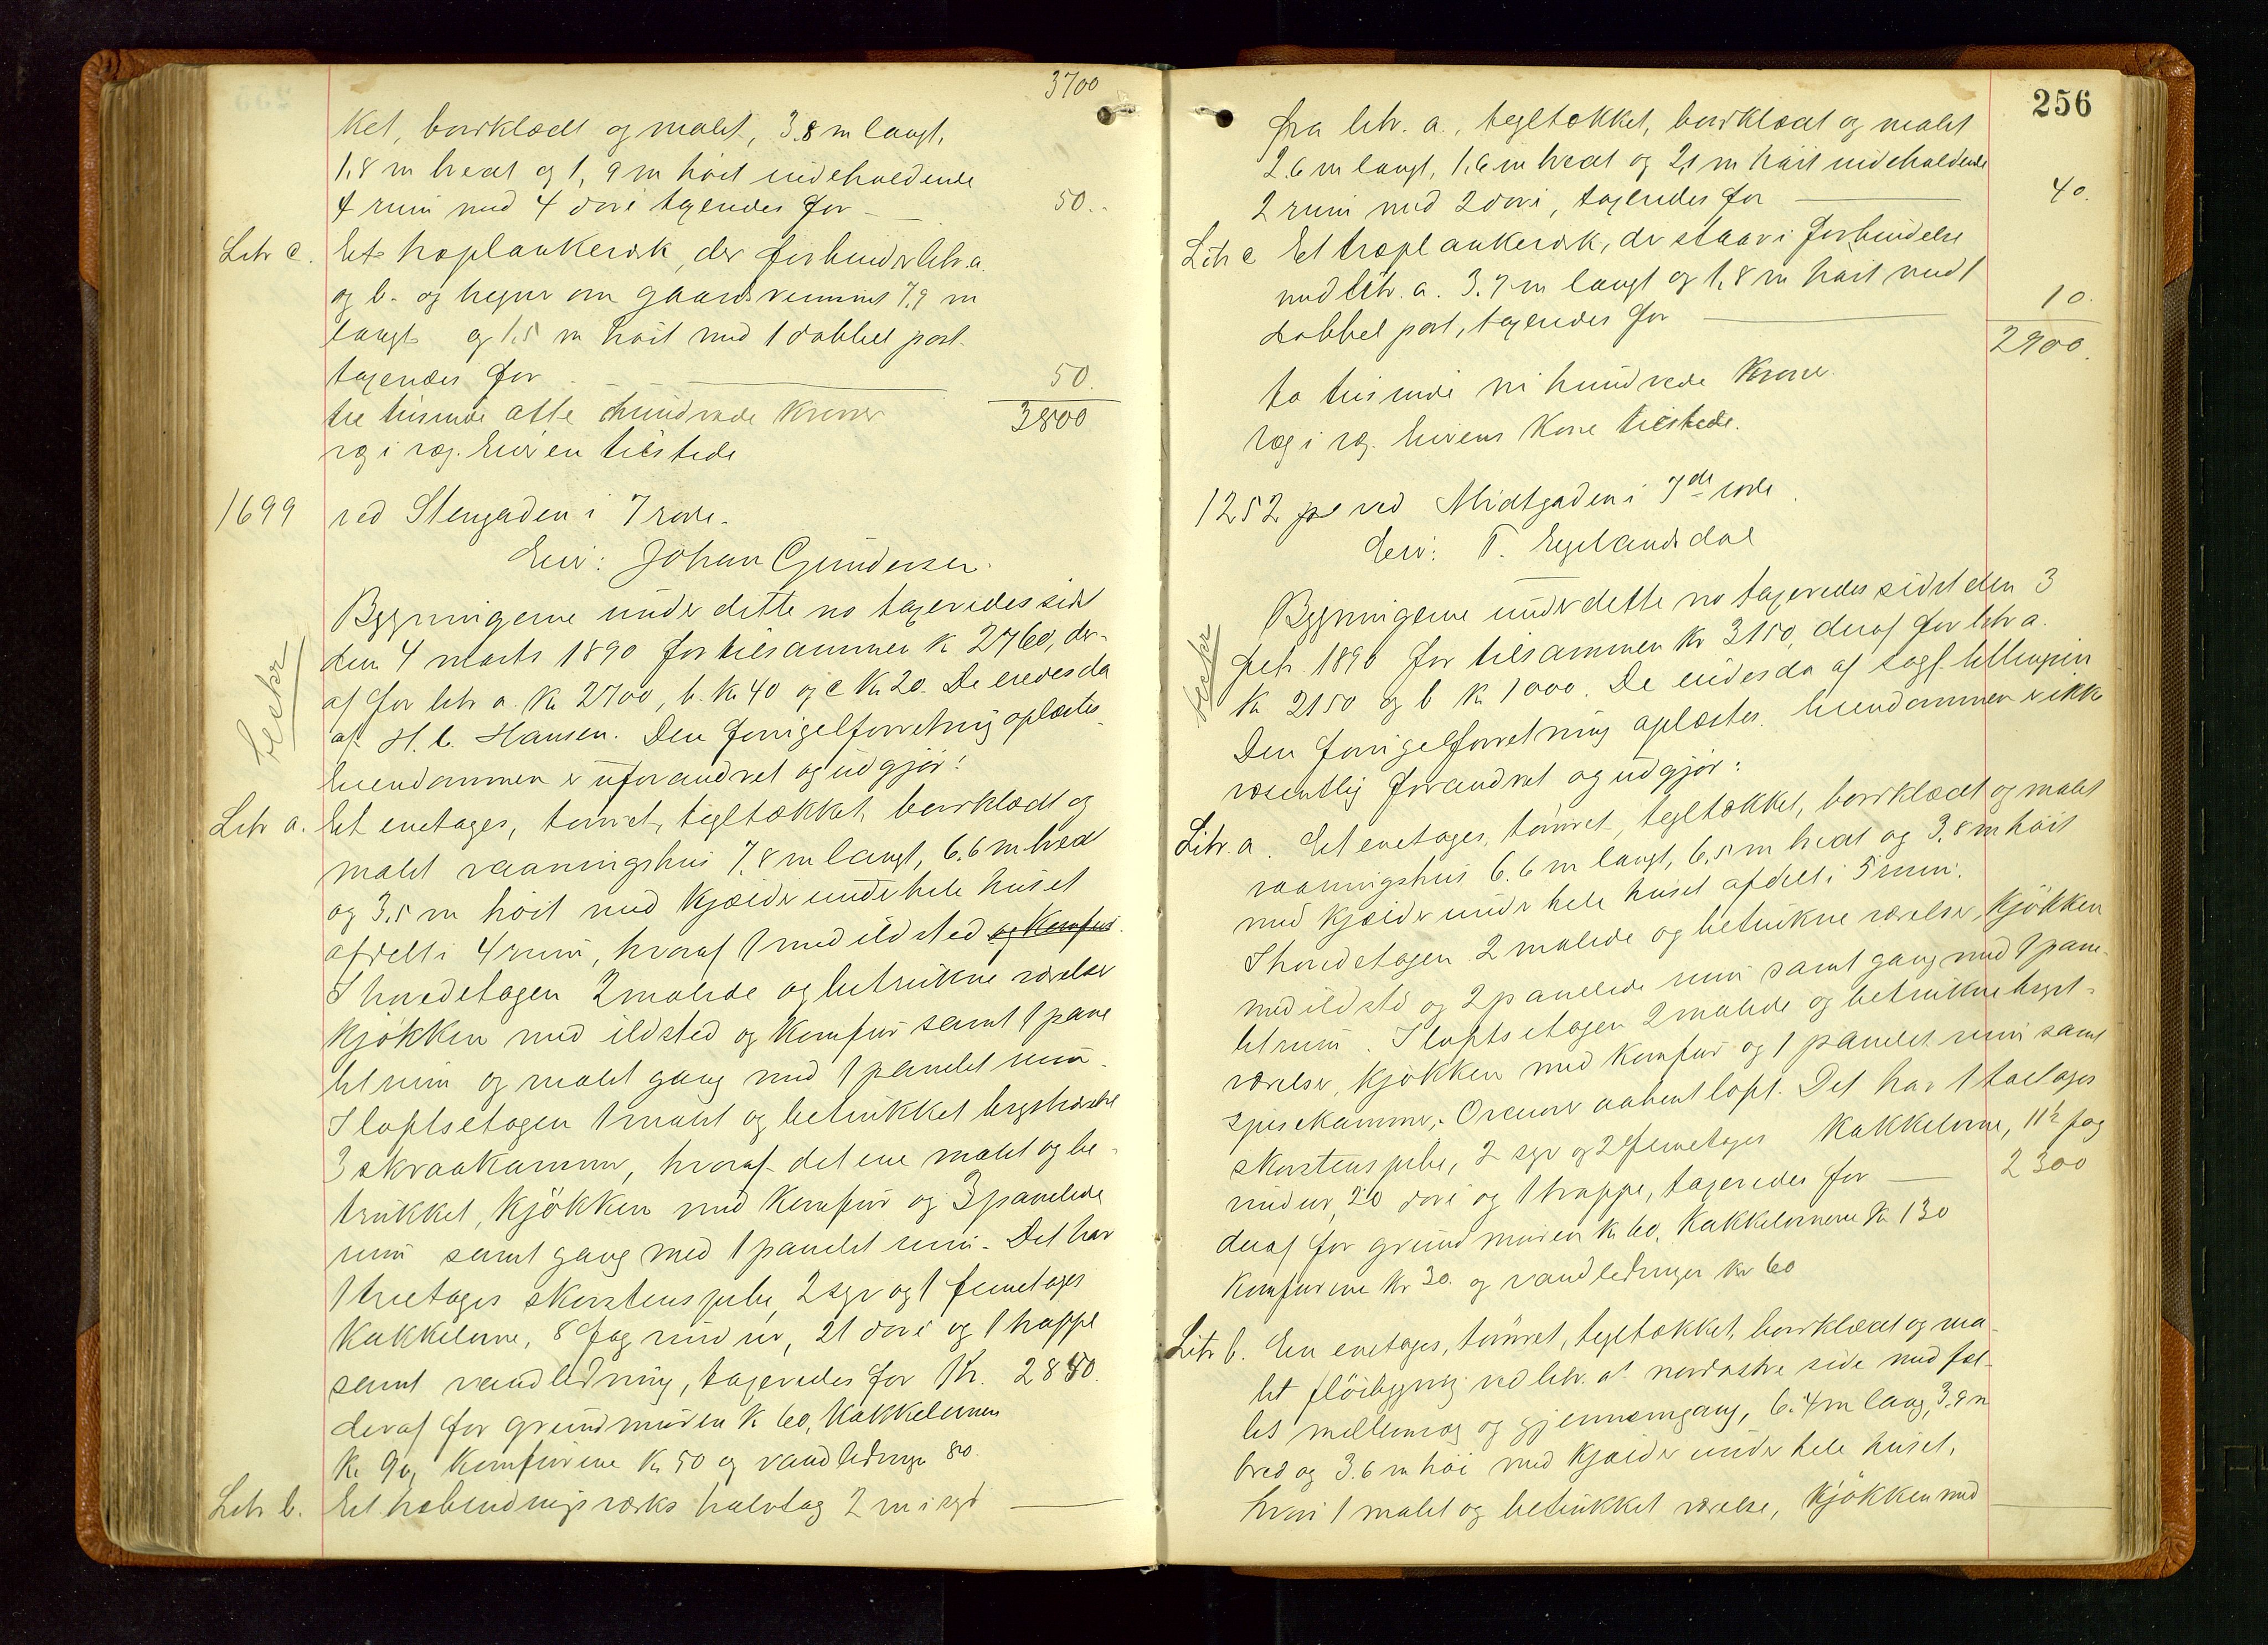 3700
ket, bordklædt og malet, 3.8 m langt,
1,8 m bredt og 1,9 m höit indeholdende
4 rum med 4 döre taxeredes for — 50.
Litr c. Et træplankeværk, der forbinder litr. a.
og b. og hegner om gaardsrummet 7,9 m
langt og 1,5 m höit med 1 dobbel port
taxeredes for — 50.
tre tusinde otte hundrede Kroner 3800
reg i reg. Eieren tilstede
1699 ved Stengaden i 7 rode.
Eier: Johan Gundersen.
Bygningerne under dette no taxeredes sidst
den 4 marts 1890 for tilsammen K 2760, der-
af for litr a. Kr 2700, b. Kr 40 og c Kr 20. De eiedes da
beskr
af H. C. Hansen. Den forrige forretning oplæstes.
Eiendommen er uforandret og udgjör:
Litr a. Et enetages, tömret, tegltækket, bordklædt og
malet vaaningshus 7,8 m langt, 6,6 m bredt
og 3,5 m höit med kjælder under hele huset
afdelt i 4 rum, hvoraf 1 med ildsted og Komfur.
I hovedetagen 2 malede og betrukne værelser
kjökken med ildsted og komfur samt 1 pane
let rum og malet gang med 1 panelet rum.
I loftsetagen 1 malet og betrukket kvistværelse
3 skraakammer, hvoraf det ene malet og be-
trukket, kjökken med komfur og 3 panelede
rum samt gang med 1 panelet rum. Det har
1 treetages skorstenspibe, 2 sgr og 1 femetages
kakkelovne, 8 fag vinduer, 21 döre og 1 trappe
samt vandledning, taxeredes for Kr. 2880.
deraf for grundmuren K 60, Kakkelovnene
Kr 90, komfurene Kr 50 og vandledninge 80.
Litr b. Et træbindingsværks halvtag 2 m i syd —
256
fra litr. a., tegltækket, bordklædt og malet
2.6 m langt, 1.6 m bredt og 2,1 m höit indeholdende
2 rum med 2 döre, taxeredes for — 40.
Litr c Et træplankeværk, der staar i forbindelse
med litr. a. 3.7 m langt og 1,8 m höit med 1
dobbel port, taxeredes for — 10.
2900.
to tusinde ni hundrede Kroner.
reg i reg. Eierens Kone tilstede.
1252 ved Midtgaden i 7de rode.
Eier: T. Egelandsdal
Bygningerne under dette no taxeredes sidst den 3
febr. 1890 for tilsammen Kr 3150, deraf for litr a.
beskr
K 2150 og b K 1000. De eiedes da af sagf.
Den forrige forretning oplæstes. Eiendommen er ikke
væsentlig forandret og udgjör:
Litr. a. Et enetages, tömret, tegltækket, bordklædt og malet
vaaningshus 6.6 m langt, 6,5 m bredt og 3,8 m höit
med kjælder under hele huset afdelt i 5 rum.
I hovedetagen 2 malede og betrukne værelser, kjökken
med ildsted og 2 panelede rum samt gang med 1 pane-
let rum. I loftsetagen 2 malede og betrukne kvist-
værelser, kjökken med komfur og 1 panelet rum samt
spisekammer. Ovenover aabent loft. Det har 1 toetages
skorstenspibe, 2 sgr og 2 femetages kakkelovne, 11½ fag
vinduer, 20 döre og 1 trappe, taxeredes for — 2300
deraf for grundmuren K 60, Kakkelovnene Kr 130
komfurene Kr 30. og vandledningen Kr 60
Litr b. En enetages, tömret, tegltækket, bordklædt og ma-
let flöibygning ved litr. a's nordöstre side med fæl-
les mellemvæg og gjennemgang, 6.4 m lang, 3.9 m
bred og 3.6 m höi med kjælder under hele huset,
hvori 1 malet og betrukket værelse, kjökken med